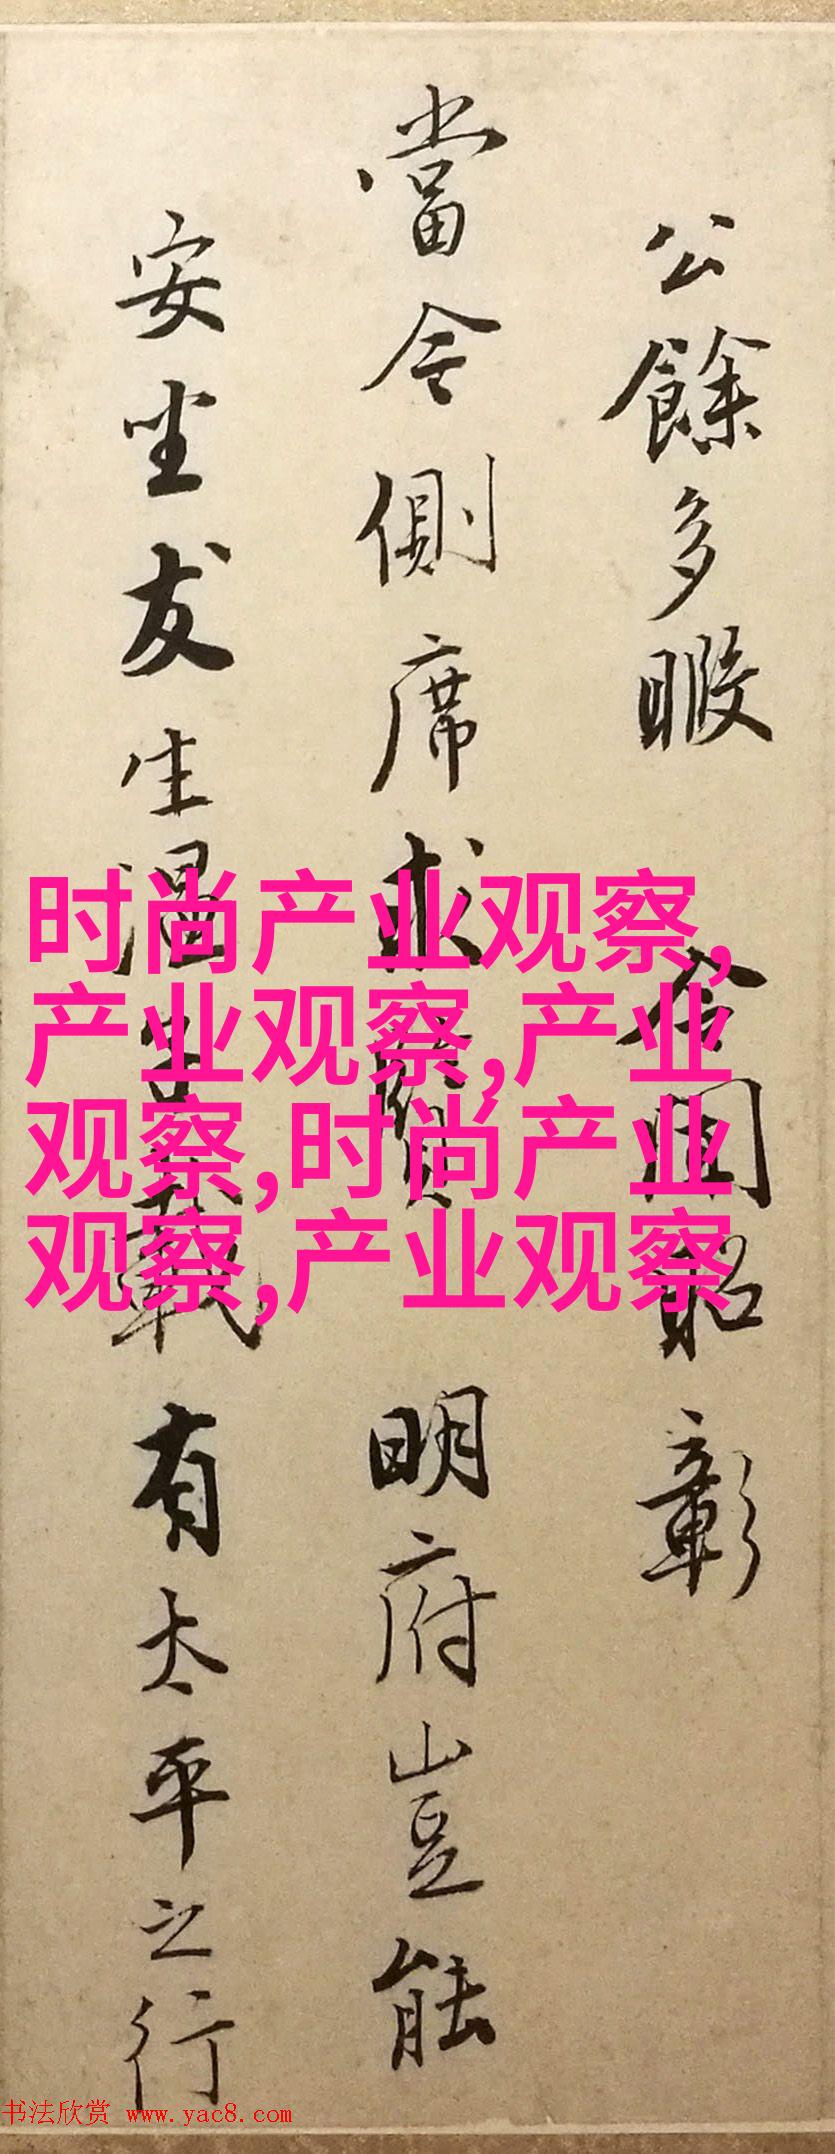 公餘多暇 令聞昭彰
當今側席求賢 明府豈能
安坐友生温 載有太平之行
时尚产业观察,
产业观察,产业
观察,时尚产业
观察,产业观察
书法欣赏 www.yac8.com